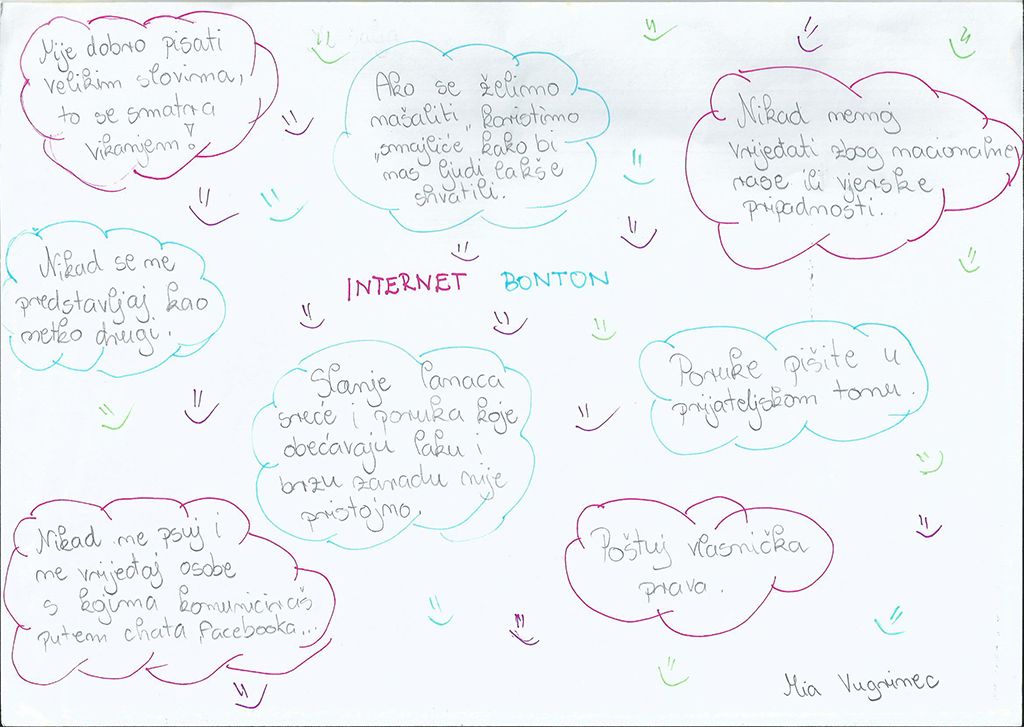 Nije dobro pisati
velikim slovima,
to se smatra
vikanjem!
Ako se želimo
našaliti, koristimo
"smajliće kako bi
nas ljudi lakše
shvatili.
Nikad nemoj
vrijeđati zbog nacionalne,
rase ili vjerske
pripadnosti.
Nikad se ne
predstavljaj kao
netko drugi.
INTERNET BONTON
Slanje lanaca
sreće i poruka koje
obećavaju laku i
brzu zaradu nije
pristojno.
Poruke pišite u
prijateljskom tonu.
Nikad ne psuj i
ne vrijeđaj osobe
s kojima komuniciraš
putem chata facebooka...
Poštuj vlasnička
prava.
Mia Vugrinec